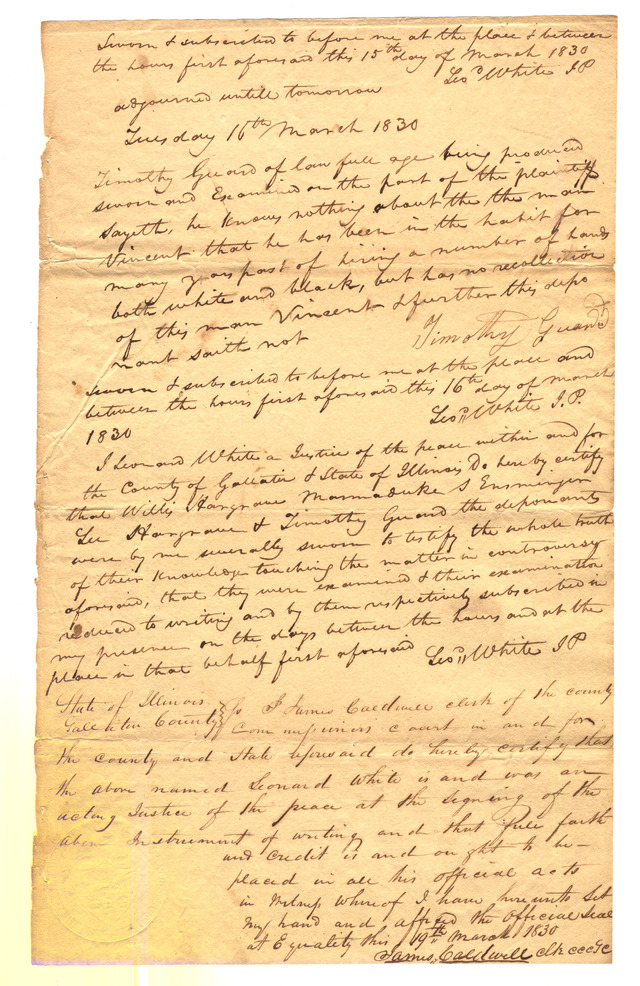 Sworn & subscribed to before me at the place & between
the hours first aforesaid this 15th day of March 1830
Leod White J P
adjourned untill tomorrow
Tuesday 16th March 1830
Timothy Guard of law full age being produced
sworn and Examined on the part of the plaintiff
sayeth, he knows nothing about the the man
Vincent that he has been in the habit for
many years past of hiring a number of hands
both white and black, but has no recollection
of this man Vincent & further this depo
nant saith not
Timothy Guard
Sworn & subscribed to before me at the place and
between the hours first aforesaid this 16th day of March
1830
Leod White J. P.
I Leonard White a Justice of the peace within and for
the County of Gallatin & State of Illinois Do hereby certify
that Willis Hargrave Marmaduke S Ensminger
Lee Hargrave & Timothy Guard the deponants
were by me severally sworn to testify the whole truth
of their knowledge touching the matter in controversy
aforesaid, that they were examined & their examination
reduced to writing and by them respectively subscribed in
my presence on the days between the hours and at the
place in that behalf first aforesaid
Leod White J P
State of Illinois
Gallatin County } Ss I James Caldwell clerk of the county
Commissioners court in and for
the county and State aforesaid do hereby certify that
the above named Leonard White is and was an
acting Justice of the peace at the signing of the
above Instrument of writing and that full faith
and credit is and ought to be
placed in all his official acts
in witness whereof I have hereunto set
my hand and affixed the official seal
at Equality this 19th March 1830
James Caldwell clk cccGC